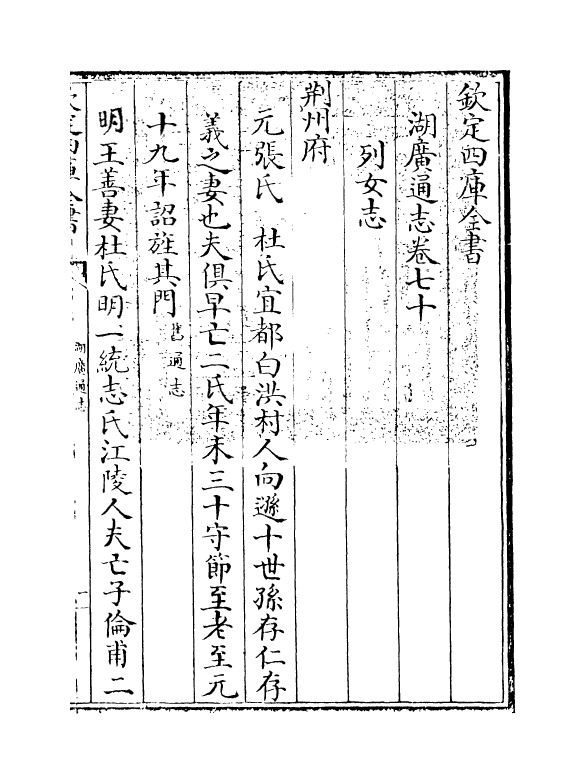 欽定四庫全書
湖廣通志卷七十
列女志
荆州府
元張氏　杜氏宜都白洪村人向遜十世孫存仁存
義之妻也夫俱早亡二氏年未三十守節至老至元
十九年詔旌其門舊通志
明王善妻杜氏明一統志氏江陵人夫亡子倫甫二
欽定四庫全書
湖廣通志